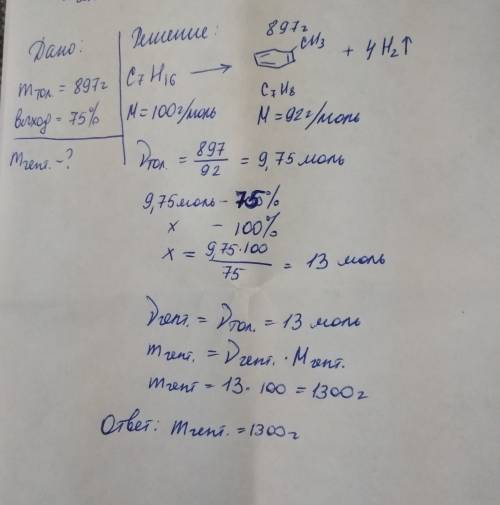 Дано:
mтол. = 897г
выход = 75%
mгепт. - ?
Решение:
897г
C7H16 → CH3 + 4H2↑
C7H8
M = 100г/моль M = 92г/моль
νтол. = 897/92 = 9,75 моль
9,75 моль - 75%
x - 100%
x = 9,75·100/75 = 13 моль
νгепт. = νтол. = 13 моль
mгепт. = νгепт. · Mгепт.
mгепт = 13 · 100 = 1300г
Ответ: mгепт. = 1300г